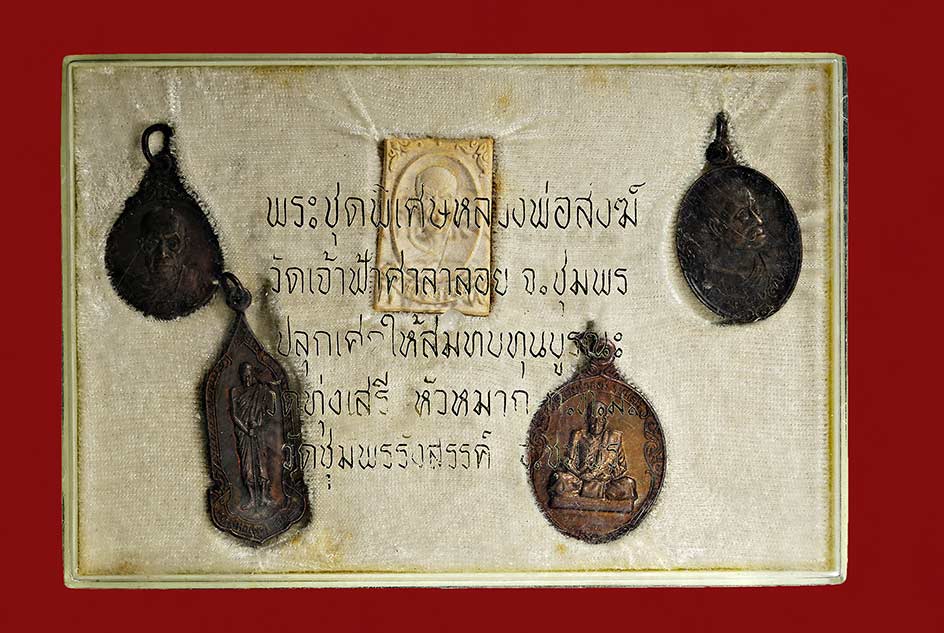 พระชุดพิเศษหลวงพ่อสงฆ์
วัดเจ้าฟ้าศาลาลอย จ.ชุมพร
ปลุกเศกให้สมทบทุนบูรณะ
วัดทุ่งเสรี หัวหมาก
วัดชุมพรรังสรรค์ จ.ชุมพร